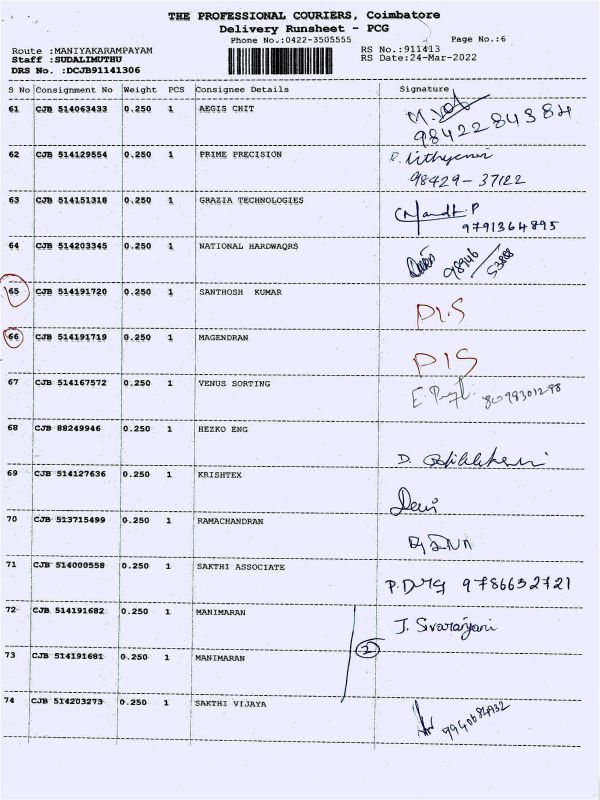 THE PROFESSIONAL COURIERS, Coimbatore
Delivery Runsheet - PCG
Phone No.:0422-3505555 Page No.:6
Route :MANIYAKARAMPAYAM RS No.:911413
Staff :SUDALIMUTHU RS Date:24-Mar-2022
DRS No. :DCJB91141306
S No Consignment No Weight PCS Consignee Details Signature
61 CJB 514063433 0.250 1 AEGIS CHIT
9842284384
62 CJB 514129554 0.250 1 PRIME PRECISION
98429-37122
63 CJB 514151318 0.250 1 GRAZIA TECHNOLOGIES
9791364895
64 CJB 514203345 0.250 1 NATIONAL HARDWAQRS
65 CJB 514191720 0.250 1 SANTHOSH KUMAR
D1.S
66 CJB 514191719 0.250 1 MAGENDRAN
D1S
67 CJB 514167572 0.250 1 VENUS SORTING
8098301298
68 CJB 88249946 0.250 1 HEZKO ENG
69 CJB 514127636 0.250 1 KRISHTEX
Devi
70 CJB 513715499 0.250 1 RAMACHANDRAN
71 CJB 514000558 0.250 1 SAKTHI ASSOCIATE
9786632721
72 CJB 514191682 0.250 1 MANIMARAN
J. Sivaranjani
2
73 CJB 514191681 0.250 1 MANIMARAN
74 CJB 514203273 0.250 1 SAKTHI VIJAYA